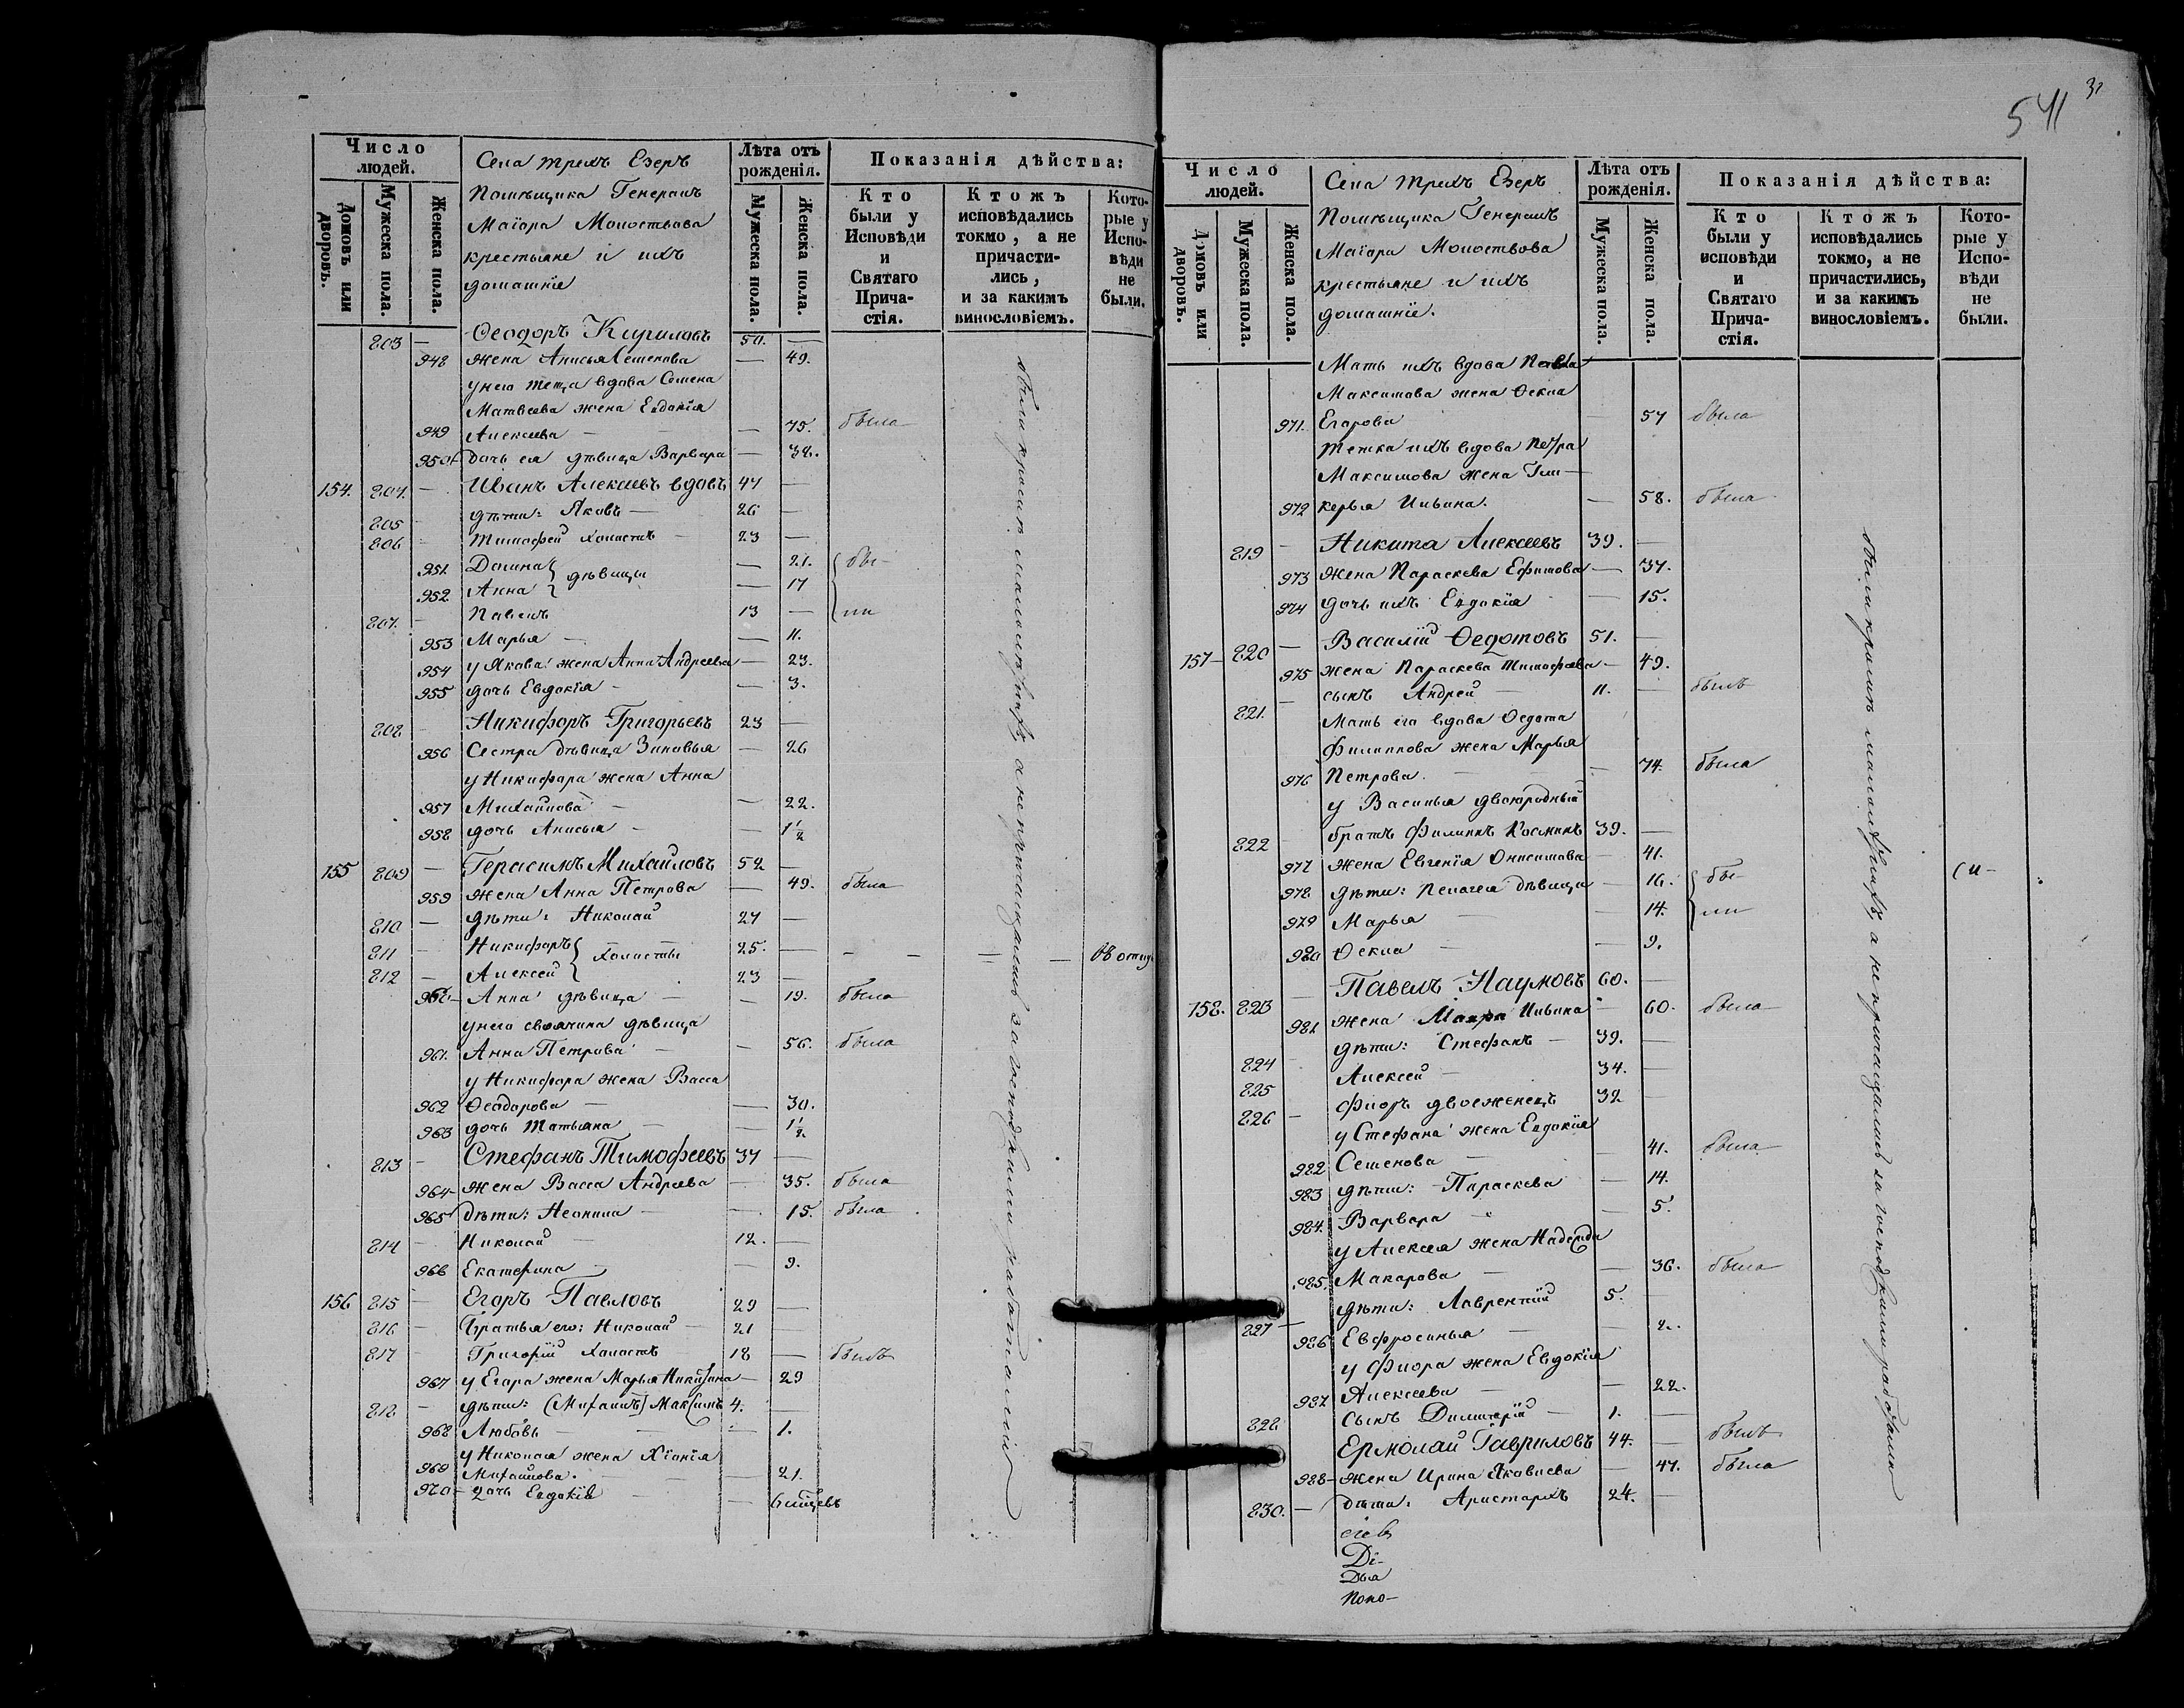 Число людей.
Домовъ или дворовъ.
Мужеска пола.
Женска пола.
Села трехъ Езеръ
Помѣщика Генералъ
Маіора Молоствова
крестьяне и ихъ
домашніе
Лѣта отъ рожденія.
Мужеска пола.
Женска пола.
Показанія дѣйства:
Кто были у Исповѣди и Святаго Прича-стія.
Ктожъ исповѣдались токмо, а не причасти-лись, и за какимъ винословіемъ.
Кото-рые у Испо-вѣди не были.
803 — Ѳеодоръ Кириловъ 50. —
948 жена Анисья Семенова — 49.
у него теща вдова Семена
Матвеева жена Евдокія
949 Алексеева — — 75. была
950 дочь ея дѣвица Варвара — 38.
154. 804. — Иванъ Алексеевъ вдовъ 47 —
805 — дѣти: Яковъ — 26 —
806 — Тимофей холостъ — 23 —
951 Домна } дѣвицы — 21. бы-
952 Анна — 17
807. — Павелъ 13 — ли
953 Марья — — 11.
954 у Якова жена Анна Андреева — 23.
955 дочь Евдокія — — 3.
808 — Никифоръ Григорьевъ 23 —
956 Сестра дѣвица Зиновья — 26
у Никифора жена Анна
957 Михайлова — — 22.
958 дочь Анисья — — 1½
155 809 — Герасимъ Михайловъ 52 —
959 жена Анна Петрова — 49. была
810 — дѣти: Николай 27 —
811 — Никифоръ } холосты 25. — — — — — Въ отлуч
812 — Алексей 23 —
960 — Анна дѣвица — — 19. была
у него своячина дѣвица
961. Анна Петрова — — 56. была
у Никифора жена Васса
962 Ѳеодорова — — 30.
963 дочь Татьяна — — 1½
813 — Стефанъ Тимофеевъ 37 —
964 жена Васса Андреева — 35. была
965 дѣти: Неонила — — 15. была
814 — Николай — 12. —
966 Екатерина — — 9.
156 815 — Егоръ Павловъ 29 —
816 — Братья его: Николай — 21 —
817 — Григорій холостъ 18 — былъ
967 у Егора жена Марья Никитина — 29
818 — дѣти: (Михаилъ) Максимъ 4. —
968 Любовь — — 1.
у Николая жена Хіонія
969 Михайлова. — — 21.
970 дочь Евдокія — — 6 мѣсцевъ
были кромѣ малолѣтнихъ, а не причащались за господскими работами
541
Число людей.
Домовъ или дворовъ.
Мужеска пола.
Женска пола.
Села трехъ Езеръ
Помѣщика Генералъ
Маіора Молоствова
крестьяне и ихъ
домашніе.
Лѣта отъ рожденія.
Мужеска пола.
Женска пола.
Показанія дѣйства:
Кто были у исповѣди и Святаго Прича-стія.
Ктожъ исповѣдались токмо, а не причастились, и за какимъ винословіемъ.
Кото-рые у Испо-вѣди не были.
Мать ихъ вдова Павла
Максимова жена Ѳекла
971. Егорова — 57 была
Тетка ихъ вдова Петра
Максимова жена Гли-
972 керья Ильина. — 58. была
819 — Никита Алексеевъ 39. —
973 жена Параскева Ефимова — 37.
974 дочь ихъ Евдокія — 15.
157 — 820 — Василій Ѳедотовъ 51. —
975 жена Параскева Тимофеева — 49.
821. — сынъ Андрей — 11. — былъ
Мать его вдова Ѳедота
Филиппова жена Марья
976 Петрова. — — 74. была
у Василья двоюродный
822 — братъ Филипъ Косминъ 39. —
977 жена Евгенія Онисимова — 41.
978 дѣти: Пелагея дѣвица — 16. бы-
979 Марья — — 14. ли
980 Ѳекла — — 9.
158. 823 — Павелъ Наумовъ 60. —
981 жена Мавра Ильина — 60. была
824 — дѣти: Стефанъ — 39. —
825 Алексей — 34. —
826 — Флоръ двоеженецъ 32 —
у Стефана жена Евдокія
982 Семенова — — 41. была
983 дѣти: Параскева — 14.
984. Варвара — — 5.
у Алексея жена Надежда
985. Макарова — — 36. была
827 — дѣти: Лаврентій 5. —
986 Евфросинья — — 2.
у Флора жена Евдокія
987 Алексеева — — 22.
828 сынъ Димитрій — 1. —
Ермолай Гавриловъ 44. — былъ
988 — жена Ирина Яковлева — 47. была
830. — дѣти: Аристархъ 24. —
были кромѣ малолѣтнихъ, а не причащались за господскими работами
Ді-
Поно-